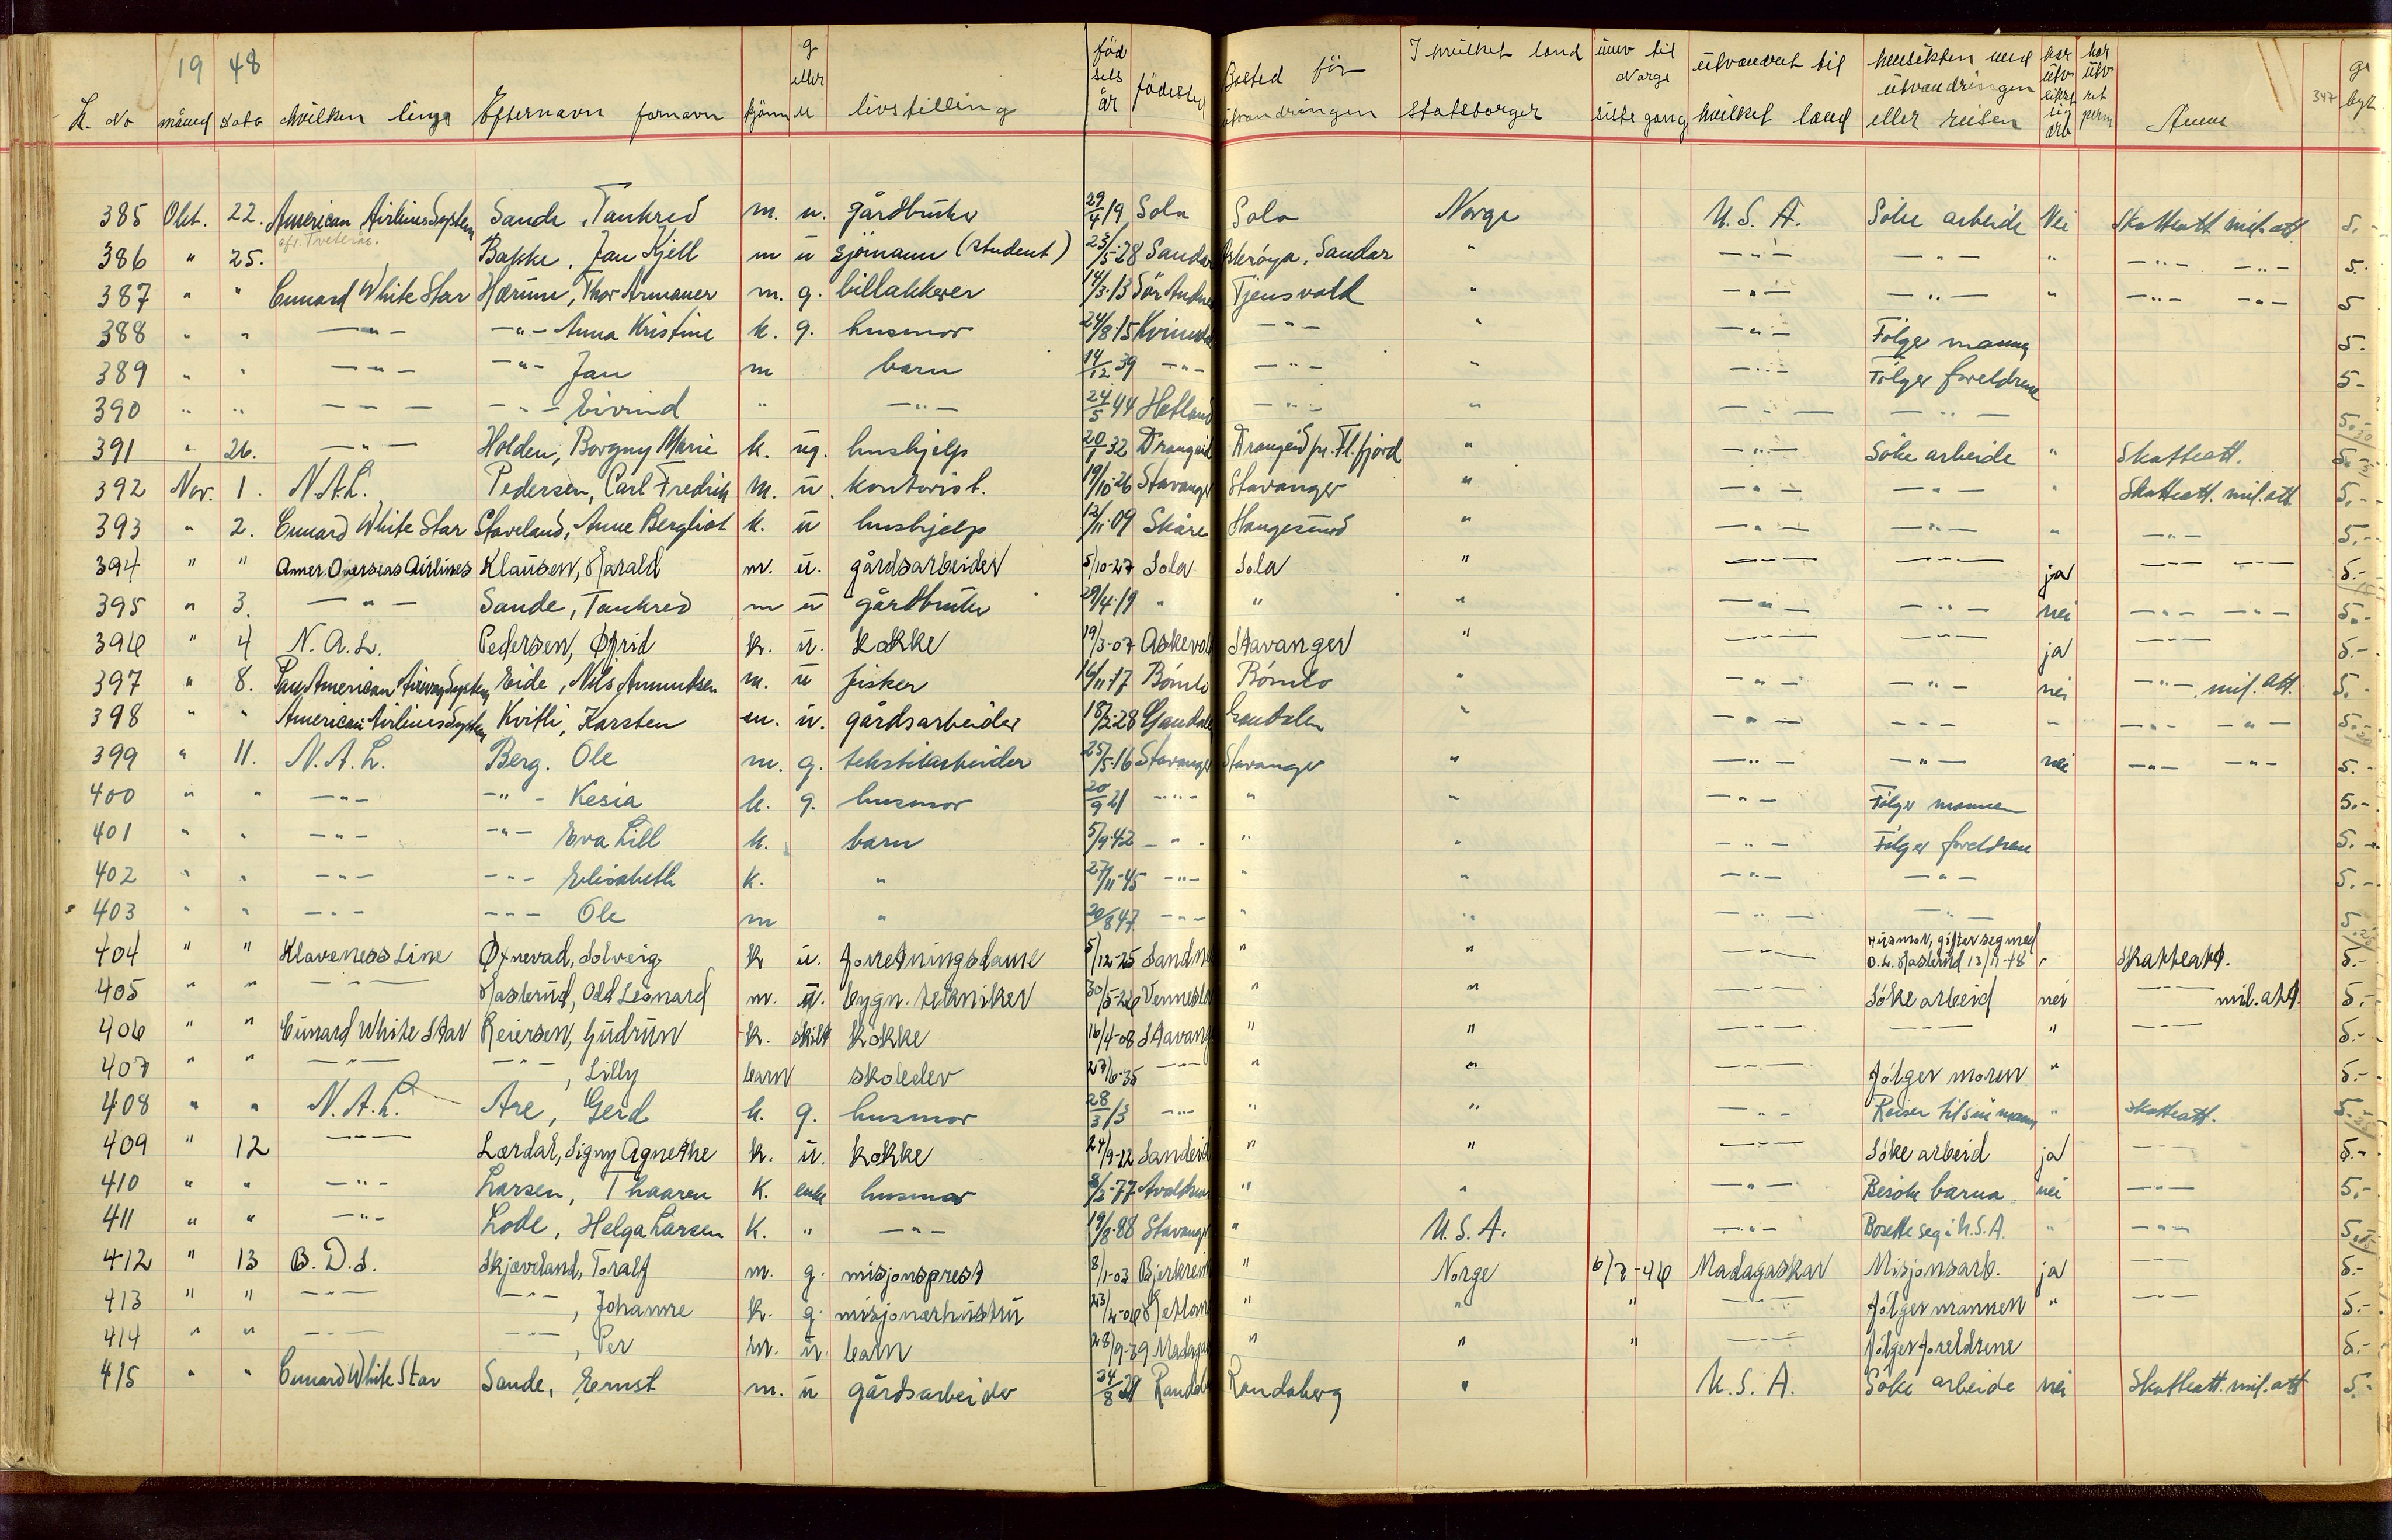 19 48
L. No måned dato hvilken linje Efternavn fornavn kjönn g eller u livsstilling föd sels år födested Bosted för utvandringen I hvilket land statsborger innv til Norge siste gang utvandret til hvilket land hensikten med utvandringen eller reisen har utv sikret sig arb har utv ret perm Anm 347 ge byr
385 Okt. 22. American Airlines System Sande, Tankred m. u. gårdbruker 29/4 19 Sola Sola Norge U.S.A. Söke arbeide Nei Skatteatt. mil. att. 5.-
386 " 25. Bakke, Jan Kjell m u sjömann (student) 23/5-28 Sandar Österöya, Sandar " -"- -"- " -"- -"- 5.
387 " " Cunard White Star Hærum, Thor Armauer m. g. billakkerer 14/3-13 Tjensvoll " -"- -"- " -"- -"- 5
388 " " -"- -"- Anna Kristine k. g. husmor 24/8-15 -"- " -"- Fölger mannen 5.
389 " " -"- -"- Jan m barn 14/12 39 -"- -"- " -"- Fölger foreldrene 5-
390 " " -"- -"- Eivind " -"- 24/5 44 Hetland -"- " -"- -"- 5.-
391 " 26. -"- Holden, Borgny Marie k. ug. hushjelp 20/1 32 Drangeid Drangeid pr. Fl.fjord " -"- Söke arbeide " Skatteatt. 5.-
392 Nov. 1. N.A.L. Pedersen, Carl Fredrik M. u. kontorist. 19/10-26 Stavanger Stavanger " -"- -"- " Skatteatt. mil. att 5.-
393 " 2. Cunard White Star Staveland, Anne Bergliot k. u hushjelp 12/11-09 Skåre Haugesund " -"- -"- " -"- 5.-
394 " " Amer. Overseas Airlines Klausen, Harald m. u. gårdsarbeider 5/10-27 Sola Sola " -"- -"- ja -"- -"- 5.-
395 " 3. -"- Sande, Tankred m u gårdbruker 29/4-19 " " " -"- -"- nei -"- -"- 5.-
396 " 4 N.A.L. Pedersen, k. u. kokke 19/3-07 Askevoll Stavanger " -"- -"- ja -"- 5.-
397 " 8. Pan American Airways System Eide, Nils m. u fisker 16/11-17 Bömlo Bömlo " -"- -"- nei -"- mil. att. 5.-
398 " " American Airlines System Kvitli, Karsten m. u. gårdsarbeider 18/2-28 Gandalen " -"- -"- " -"- -"- 5.-
399 " 11. N.A.L. Berg. Ole m. g. tekstilarbeider 25/5-16 Stavanger Stavanger " -"- -"- nei -"- -"- 5.-
400 " " -"- -"- Kesia k. g. husmor 20/9 21 -"- " " -"- Fölger mannen 5.-
401 " " -"- -"- Eva Lill k. barn 5/9-42 -"- " " -"- Fölger foreldrene 5.-
402 " " -"- -"- Elisabeth k. " 27/11-45 -"- " " -"- -"- 5.-
403 " " -"- -"- Ole m " 20/8 47. -"- " " -"- -"- 5.
404 " " Klaveness Line Øxnevad, Solveig k u. forretningsdame 5/12-25 Sandnes " " -"- Husmor, gifter seg med O.L. Hasterud 13/11-48 " Skatteatt. 5.-
405 " " -"- Hasterud, Odd Leonard m. u. bygn. tekniker 30/5-26 Vennesla " " -"- Söke arbeid nei -"- mil. att. 5.-
406 " " Cunard White Star Reiersen, Gudrun k. skilt kokke 16/4-08 Stavanger " " -"- -"- " -"- 5.-
407 " " -"- -"-, Lilly barn skoleelev 27/6-35 -"- " " -"- Fölger moren " 5.-
408 " " N.A.L. Are, Gerd k. g. husmor 28/3 13 -"- " " -"- Reiser til sin mann " Skatteatt. 5.-
409 " 12 -"- Lærdal, Signy Agnethe k. u. kokke 24/9-12 Sandeid " " -"- Söke arbeid ja -"- 5.-
410 " " -"- Larsen, Thaaren K. enke husmor 8/2-77 " " -"- Besöke barna nei -"- 5.-
411 " " -"- Lode, Helga Larsen K. " -"- 19/8-88 Stavanger " U.S.A. -"- Bosette seg i U.S.A. " -"- 5.
412 " 13 B.D.S. Skjæveland, Toralf m. g. misjonsprest 8/1-03 Bjerkreim " Norge 6/8-46 Madagaskar Misjonsarb. ja -"- 5.-
413 " " -"- -"-, Johanne k. g. misjonærhustru 23/12-06 Hetland " " " -"- Fölger mannen " -"- 5.-
414 " " -"- -"-, Per m. u. barn 28/9-39 Madagas " " " -"- Fölger foreldrene 5.-
415 " " Cunard White Star Sande, Ernst m. u gårdsarbeider 24/8 29 Randaberg " U.S.A. Söke arbeide nei Skatteatt. mil. att 5.-